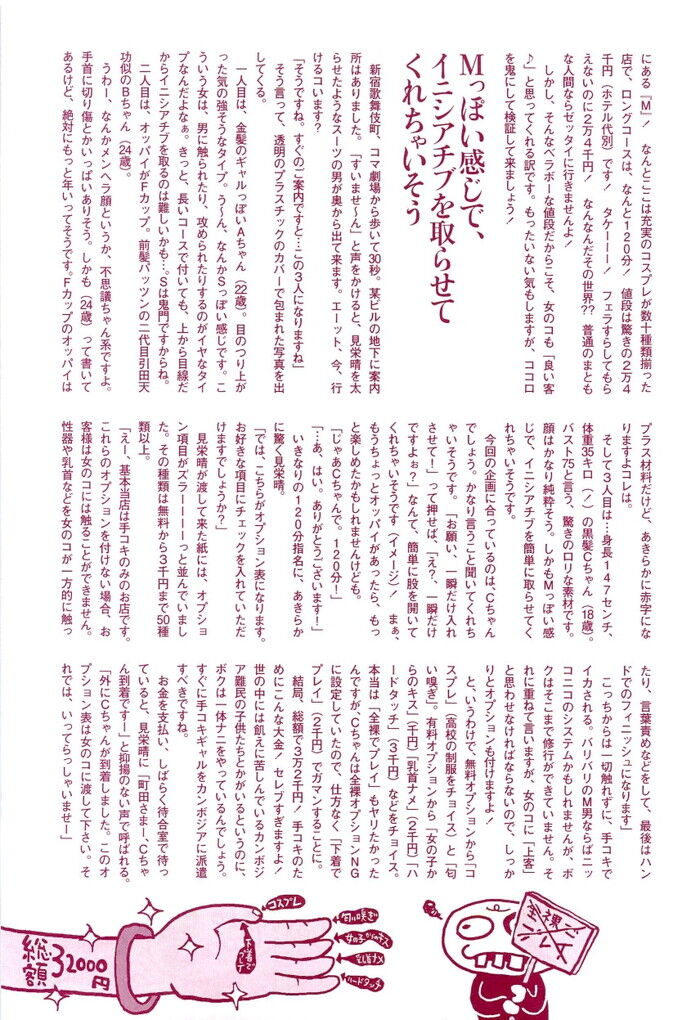 にある『M』！　なんとここは充実のコスプレが数十種類揃った
店で、ロングコースは、なんと120分！　値段は驚きの2万4
千円（ホテル代別）です！　タケーーー！　フェラすらしてもら
えないのに2万4千円！　なんなんだその世界??　普通のまとも
な人間ならゼッタイに行きませんよ！
しかし、そんなベラボーな値段だからこそ、女のコも「良い客
♪」と思ってくれる訳です。もったいない気もしますが、ココロ
を鬼にして検証して来ましょう！
Mっぽい感じで、
イニシアチブを取らせて
くれちゃいそう
新宿歌舞伎町、コマ劇場から歩いて30秒。某ビルの地下に案内
所はありました。「すいませ～ん」と声をかけると、見栄晴を太
らせたようなスーツの男が奥から出て来ます。エーット、今、行
けるコいます？
「そうですね。すぐのご案内ですと…この3人になりますね」
そう言って、透明のプラスチックのカバーで包まれた写真を出
してくる。
一人目は、金髪のギャルっぽいAちゃん（22歳）。目のつり上が
った気の強そうなタイプ。う～ん、なんかSっぽい感じです。こ
ういう女は、男に触られたり、攻められたりするのがイヤなタイ
プなんだよなぁ。きっと、長いコースで付いても、上から目線だ
からイニシアチブを取るのは難しいかも…。Sは鬼門ですからね。
二人目は、オッパイがFカップ。前髪パッツンの二代目引田天
功似のBちゃん（24歳）。
うわー、なんかメンヘラ顔というか、不思議ちゃん系ですよ。
手首に切り傷とかいっぱいありそう。しかも（24歳）って書いて
あるけど、絶対にもっと年いってそうです。Fカップのオッパイは
プラス材料だけど、あきらかに赤字にな
りますよコレは。
そして3人目は…身長147センチ、
体重35キロ（！）の黒髪Cちゃん（18歳）。
バスト75と言う、驚きのロリな素材です。
顔はかなり純粋そう。しかもMっぽい感
じで、イニシアチブを簡単に取らせてく
れちゃいそうです。
今回の企画に合っているのは、Cちゃん
でしょう。かなり言うこと聞いてくれち
ゃいそうです。「お願い、一瞬だけ入れ
させて！」って押せば、「え？、一瞬だけ
ですよぉ？」なんて、簡単に股を開いて
くれちゃいそうです（イメージ）！　まぁ、
もうちょっとオッパイがあったら、もっ
と楽しめたかもしれませんけども。
「じゃあCちゃんで。120分！」
「…あ、はい。ありがとうございます！」
いきなりの120分指名に、あきらか
に驚く見栄晴。
「では、こちらがオプション表になります。
お好きな項目にチェックを入れていただ
けますでしょうか？」
見栄晴が渡して来た紙には、オプショ
ン項目がズラーーーーっと並んでいまし
た。その種類は無料から3千円まで50種
類以上。
「えー、基本当店は手コキのみのお店です。
これらのオプションを付けない場合、お
客様は女のコには触ることができません。
性器や乳首などを女のコが一方的に触っ
たり、言葉責めなどをして、最後はハン
ドでのフィニッシュになります」
こっちからは一切触れずに、手コキで
イカされる。バリバリのM男ならばニッ
コニコのシステムかもしれませんが、ボ
クはそこまで修行ができていません。そ
れに重ねて言いますが、女のコに「上客」
と思わせなければならないので、しっか
りとオプションも付けますよ！
と、いうわけで、無料オプションから「コ
スプレ」（高校の制服をチョイス）と「匂
い嗅ぎ」。有料オプションから「女の子か
らのキス」（千円）「乳首ナメ」（2千円）「ハ
ードタッチ」（3千円）などをチョイス。
本当は「全裸でプレイ」もヤリたかった
んですが、Cちゃんは全裸オプションNG
に設定していたので、仕方なく「下着で
プレイ」（2千円）でガマンすることに。
結局、総額で3万2千円！　手コキのた
めにこんな大金！　セレブすぎますよ！
世の中には飢えに苦しんでいるカンボジ
ア難民の子供たちとかがいるというのに、
ボクは一体ナニをやっているんでしょう。
すぐに手コキギャルをカンボジアに派遣
すべきですね。
お金を支払い、しばらく待合室で待っ
ていると、見栄晴に「町田さまー、Cちゃ
ん到着ですー」と抑揚のない声で呼ばれる。
「外にCちゃんが到着しました。このオ
プション表は女のコに渡して下さい。そ
れでは、いってらっしゃいませー」
コスプレ
匂い嗅ぎ
女の子からのキス
乳首ナメ
ハードタッチ
下着でプレイ
総額
32000円
全裸プレイ